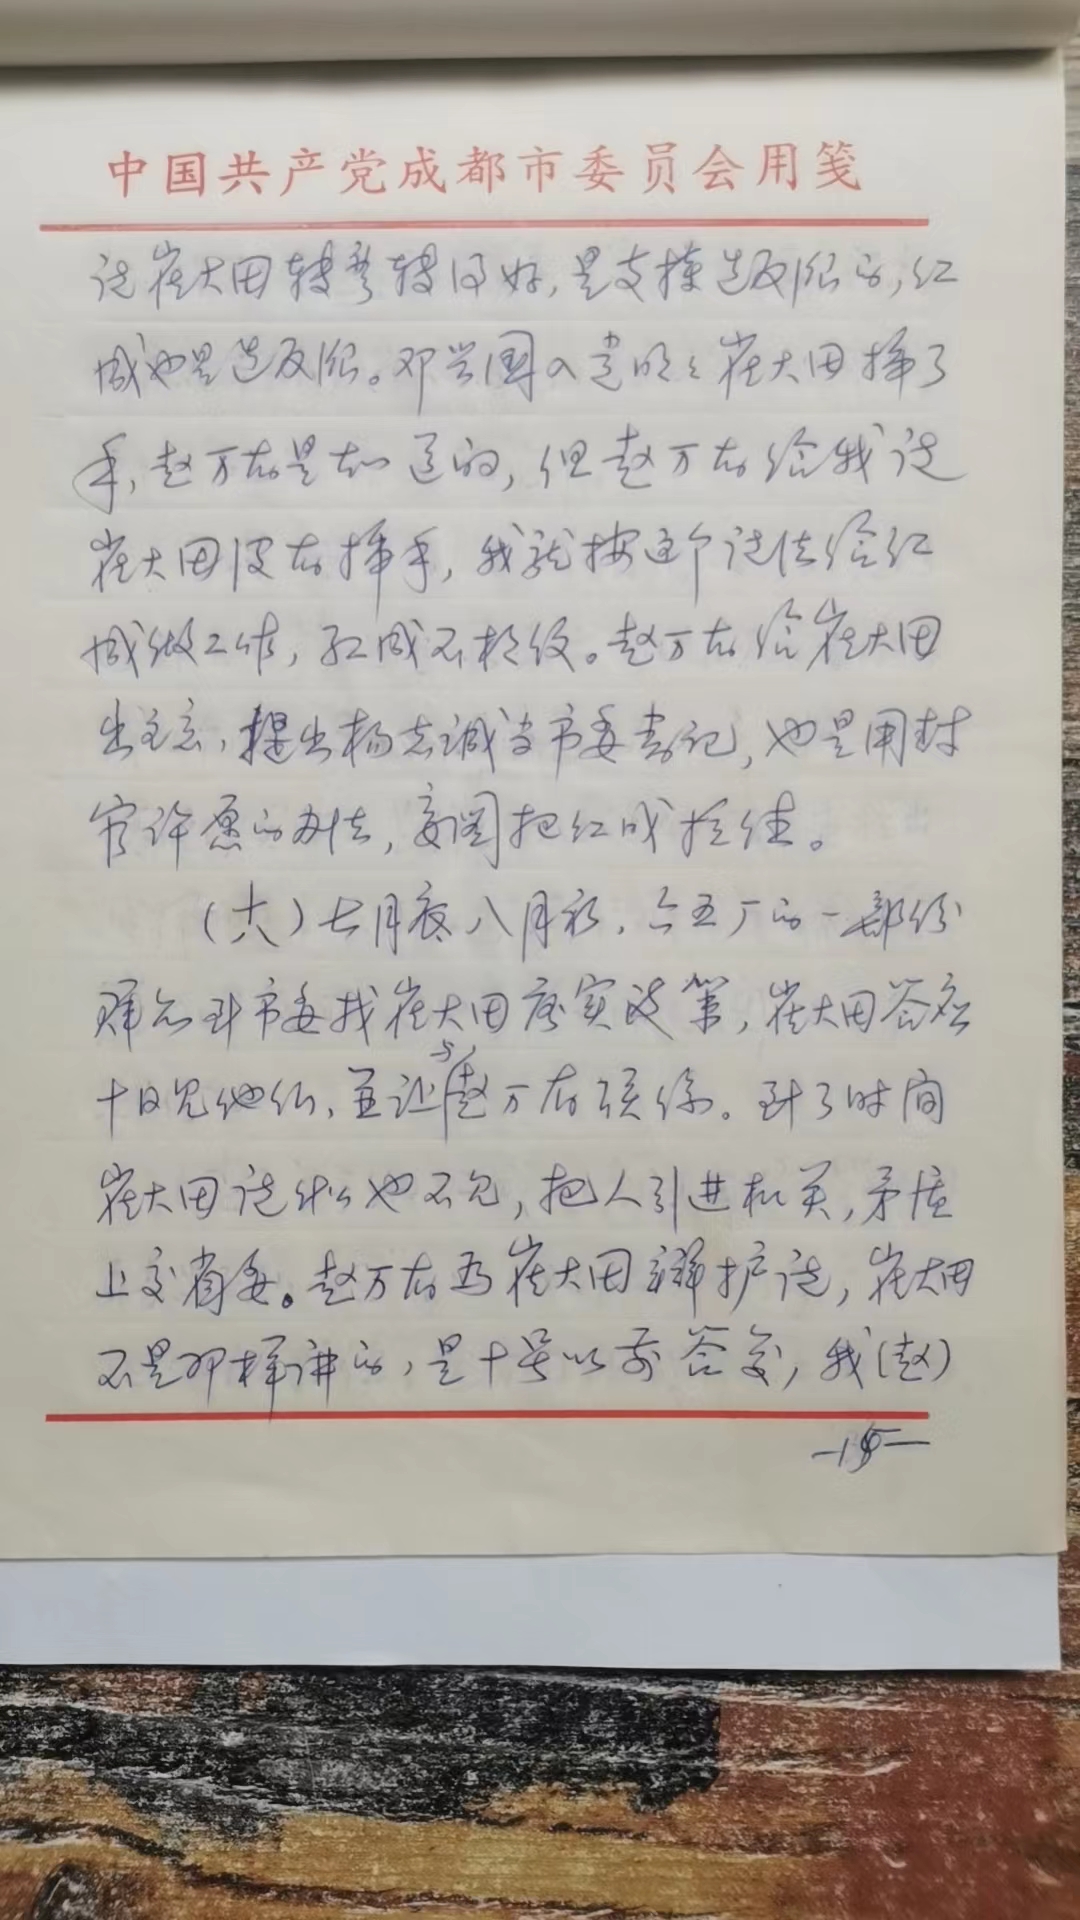 中国共产党成都市委员会用笺
说崔大田转弯转得好，是支持造反派的，红
城也是造反派。邓兴国入党明明崔大田插了
手，赵万存是知道的，但赵万存给我说
崔大田没有插手，我就按这个说法给红
城做工作，红成不相信。赵万存给崔大田
出主意，提出杨志诚当市委书记，也是用封
官许愿的办法，妄图把红成拉住。
（六）七月底八月初，六五厂的一部份
群众到市委找崔大田落实政策，崔大田答应
十日见他们，并让与赵万存联系。到了时间
崔大田说什么也不见，把人引进机关，矛盾
上交省委。赵万存为崔大田辩护说，崔大田
不是那样讲的，是十号以前答复，我（赵）